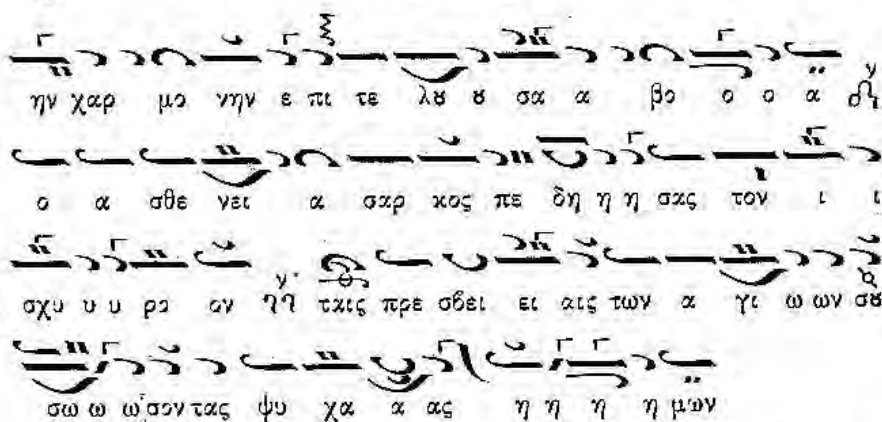 ην χαρ μο νην ε πι τε λȣ ȣ σα α βο ο ο α
ο α σθε νει α σαρ κος πε δη η η σας τον ι ι
σχυ υ υ ρο ον ταις πρε σβει ει αις των α γι ω ων σȣ
σω ω ω σον τας ψυ χα α ας η η η η μων